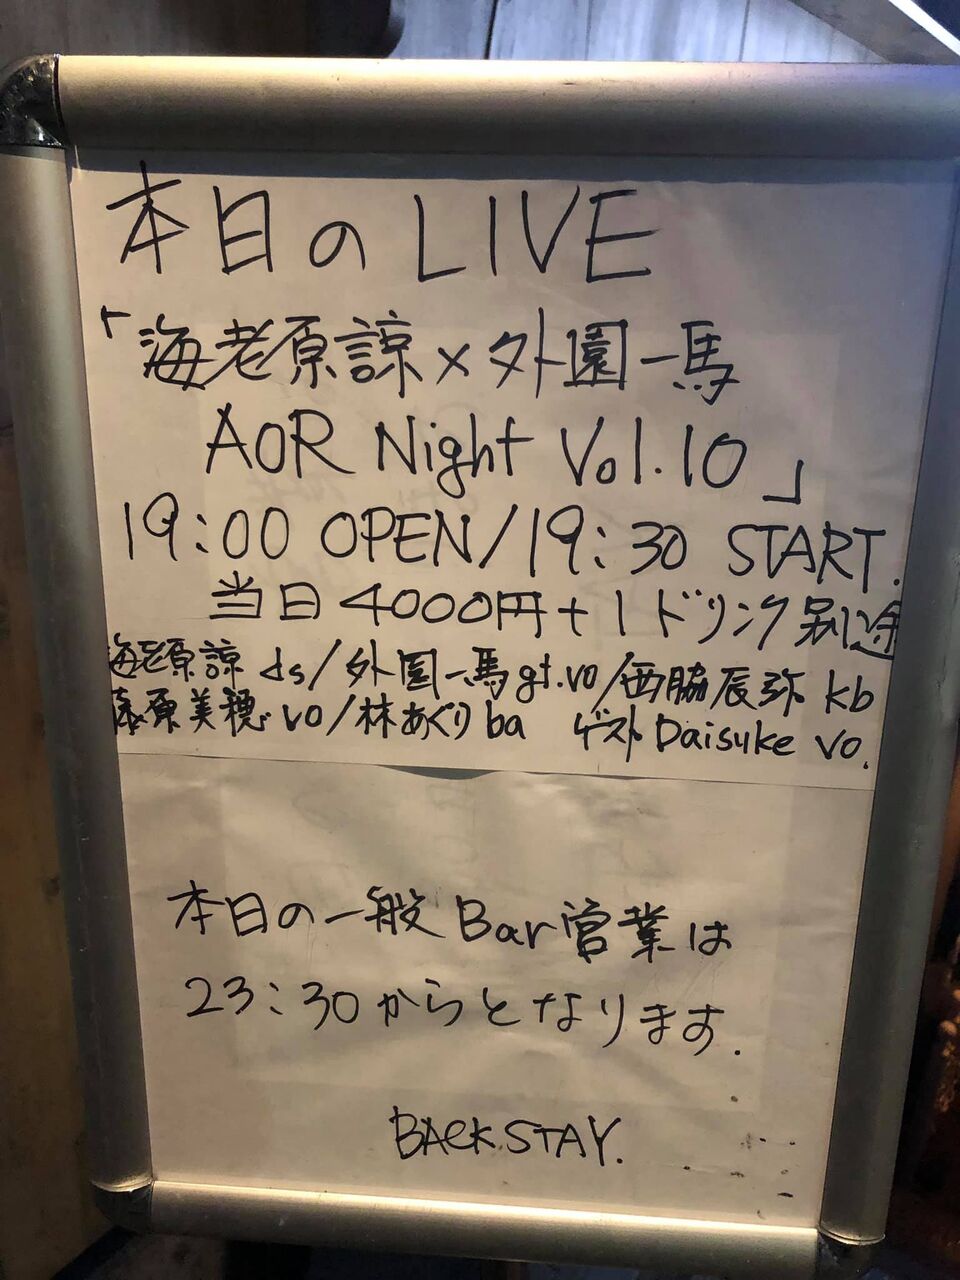 本日のLIVE
「海老原諒×外園一馬
AOR Night Vol.10」
19:00 OPEN/19:30 START.
当日4000円+1ドリンク別途
海老原諒 ds/外園一馬 gt.vo/西脇辰弥 kb
藤原美穂 vo/林あぐり ba ゲスト Daisuke vo.
本日の一般Bar営業は
23:30からとなります.
BACK STAY.